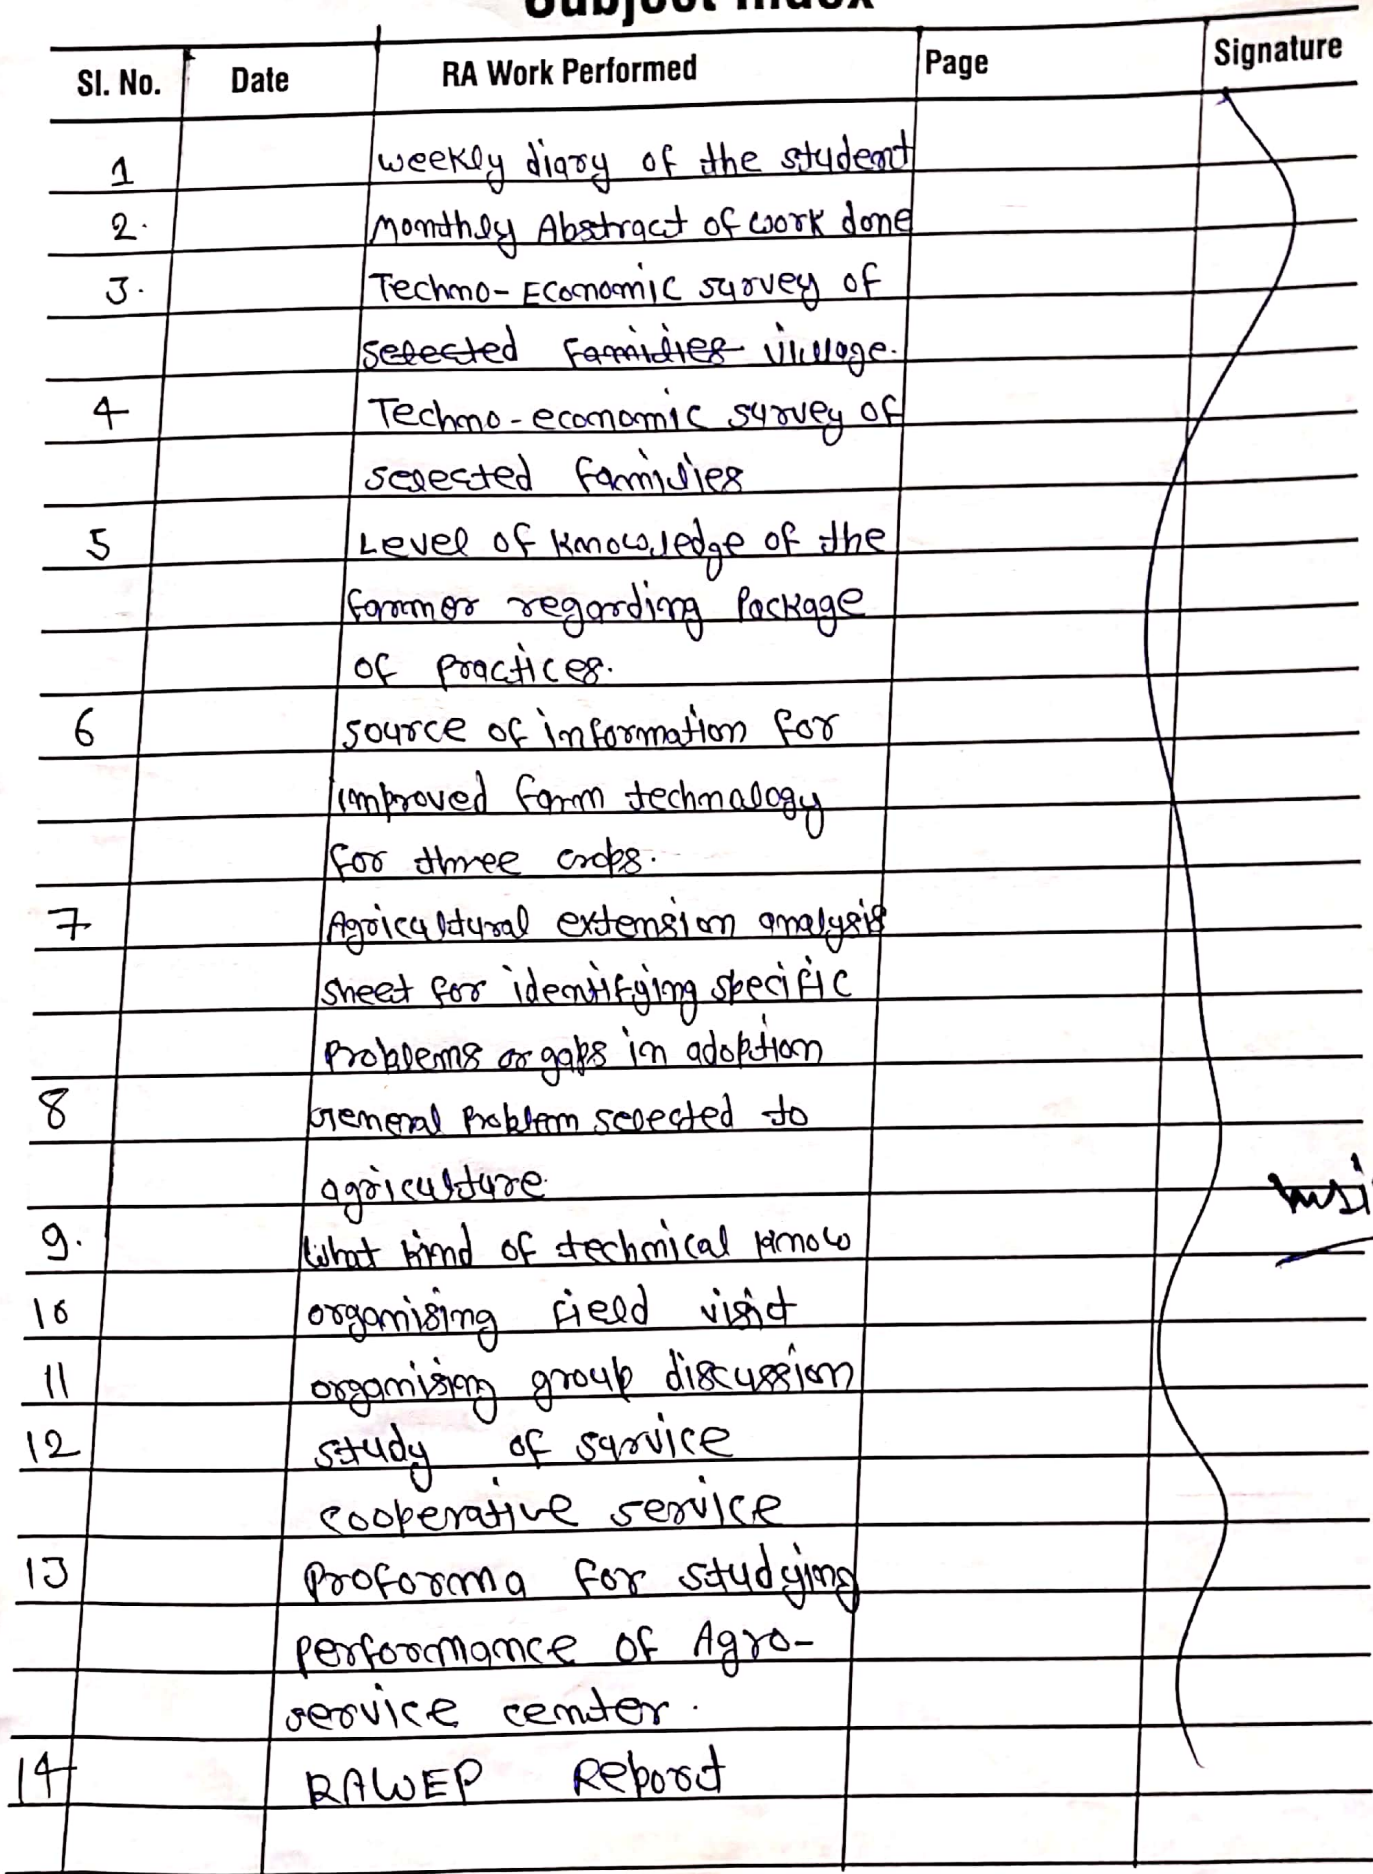 Subject Index
Sl. No. Date RA Work Performed Page Signature
1 weekly diary of the student
2. Monthly Abstract of work done
3. Techno-Economic survey of
selected families village.
4 Techno-economic survey of
selected families
5 Level of knowledge of the
farmer regarding Package
of practices.
6 source of information for
improved farm technology
for three crops.
7 Agricultural extension analysis
sheet for identifying specific
problems or gaps in adoption
8 General Problem selected to
agriculture
9. What kind of technical know
10 organising field visit
11 organising group discussion
12 study of sarvice
cooperative service
13 Proforma for studying
performance of Agro-
service center.
14 RAWEP Report